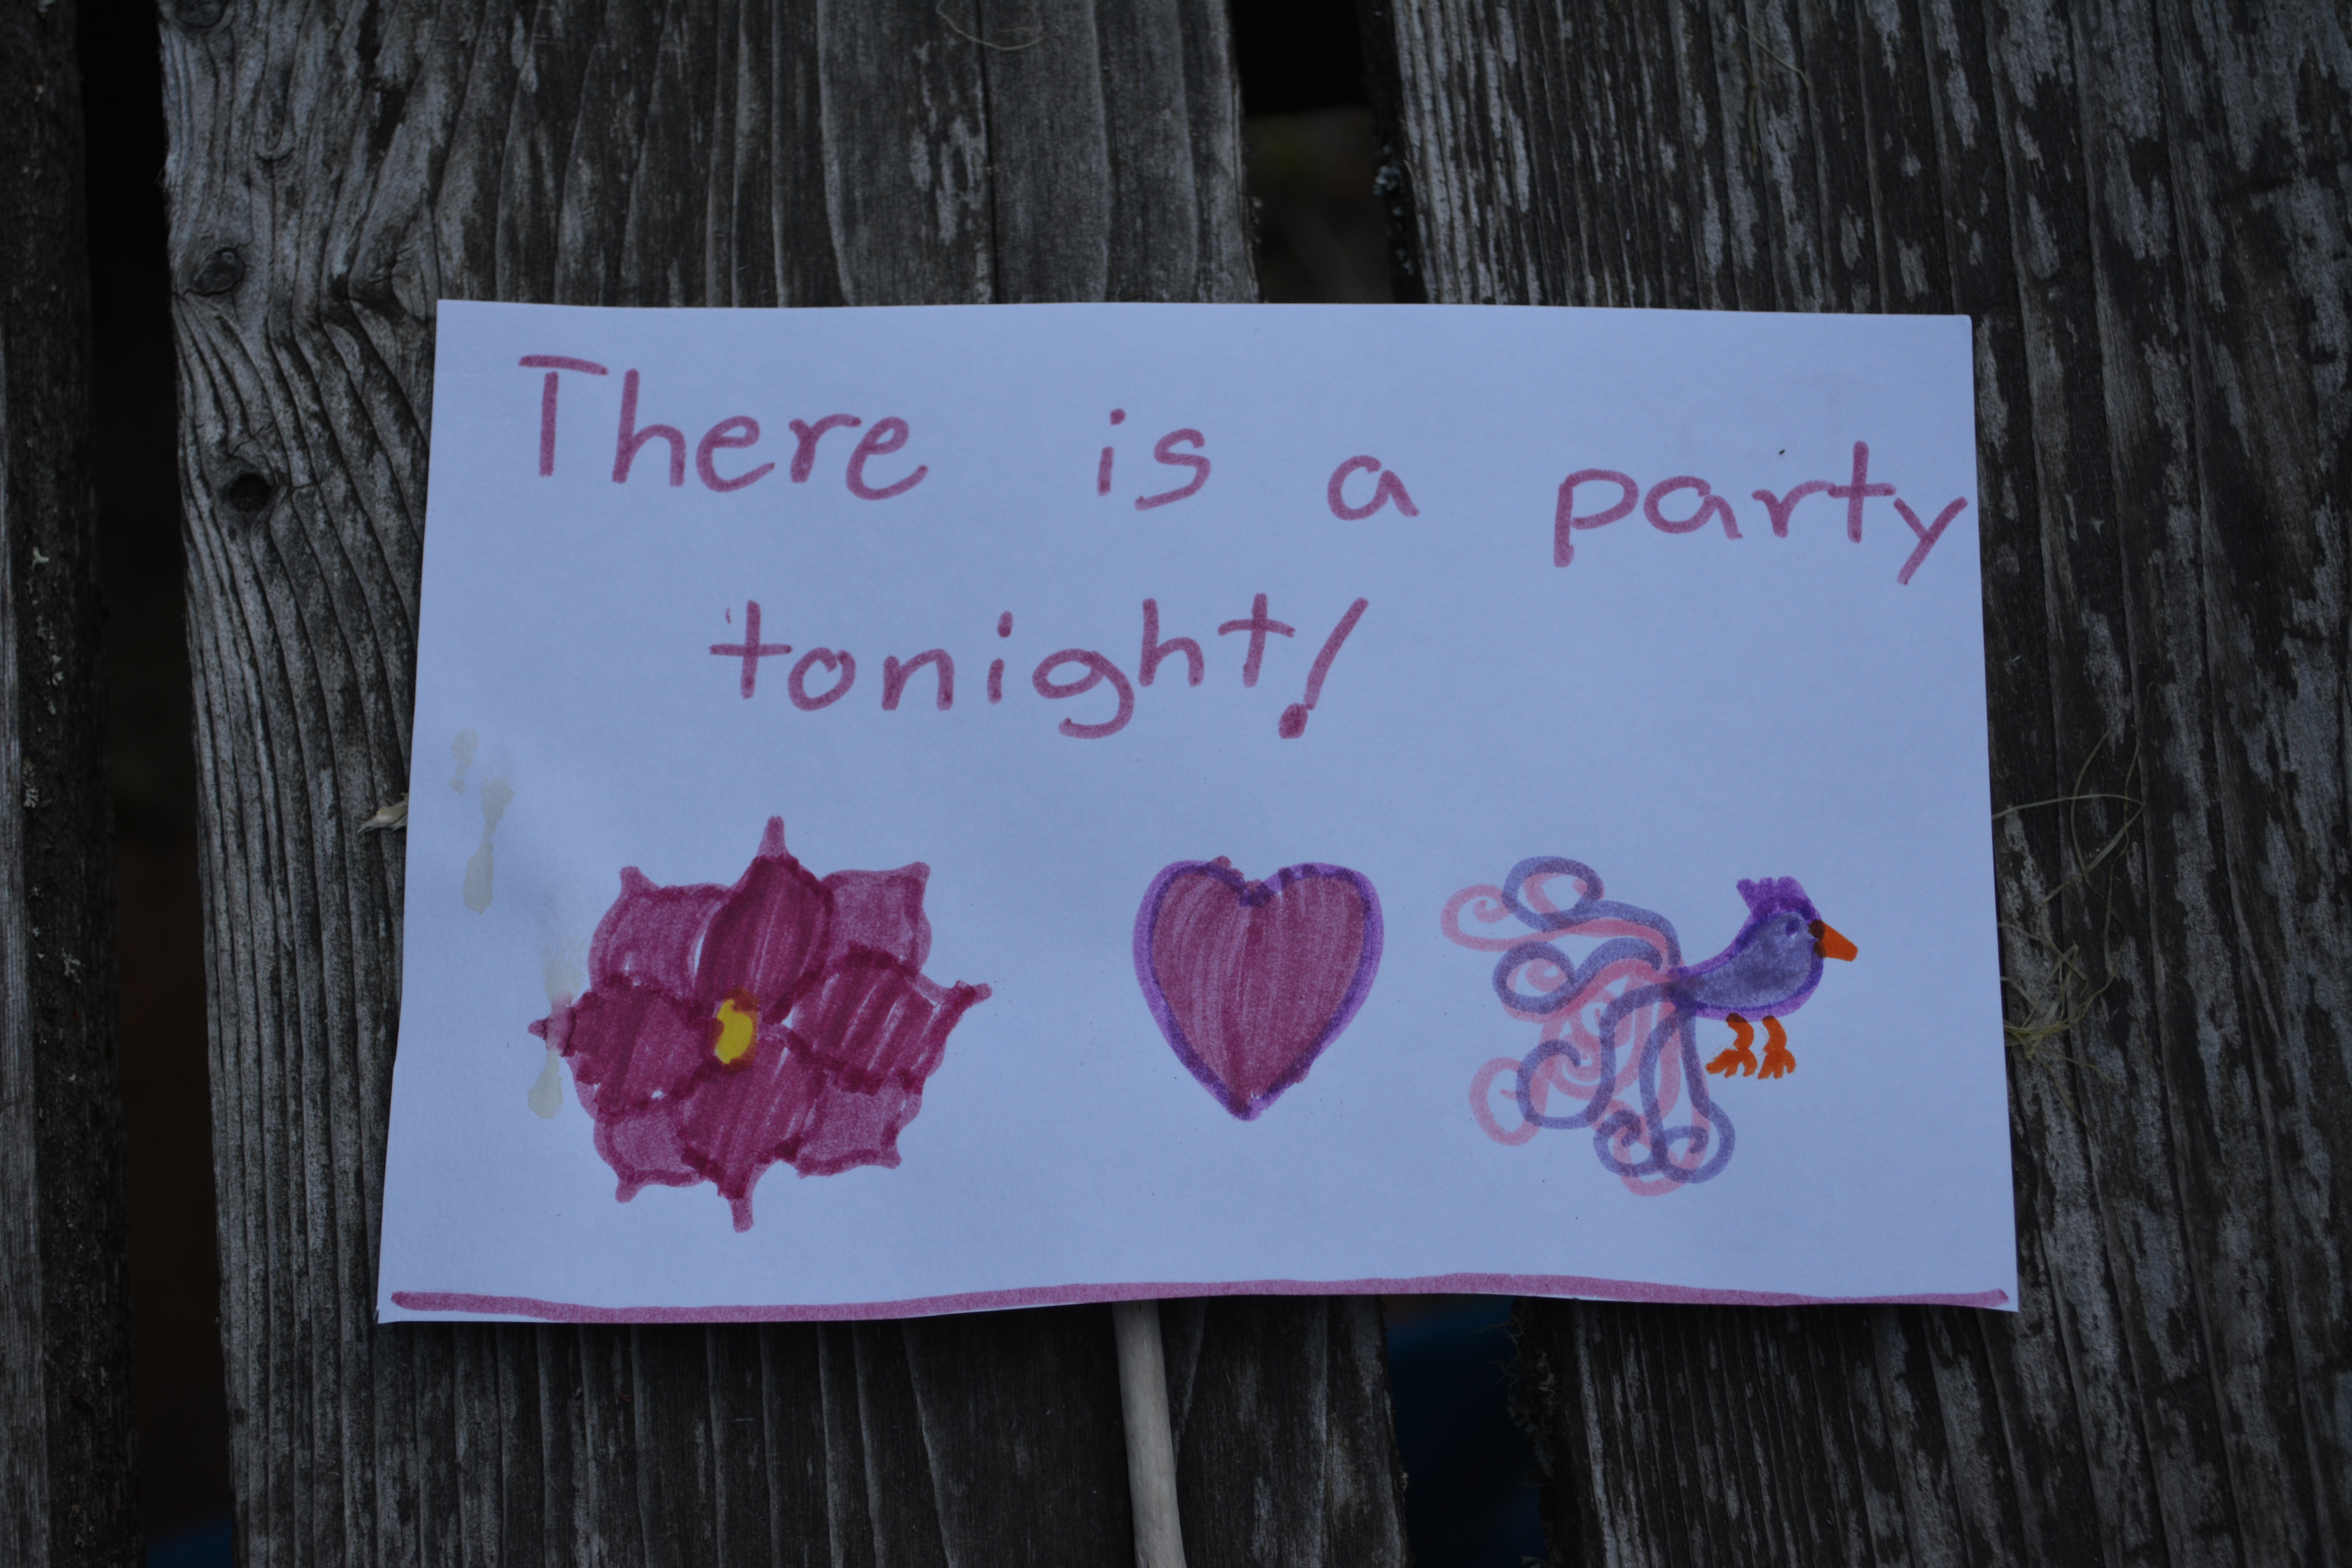 There is a party
tonight!